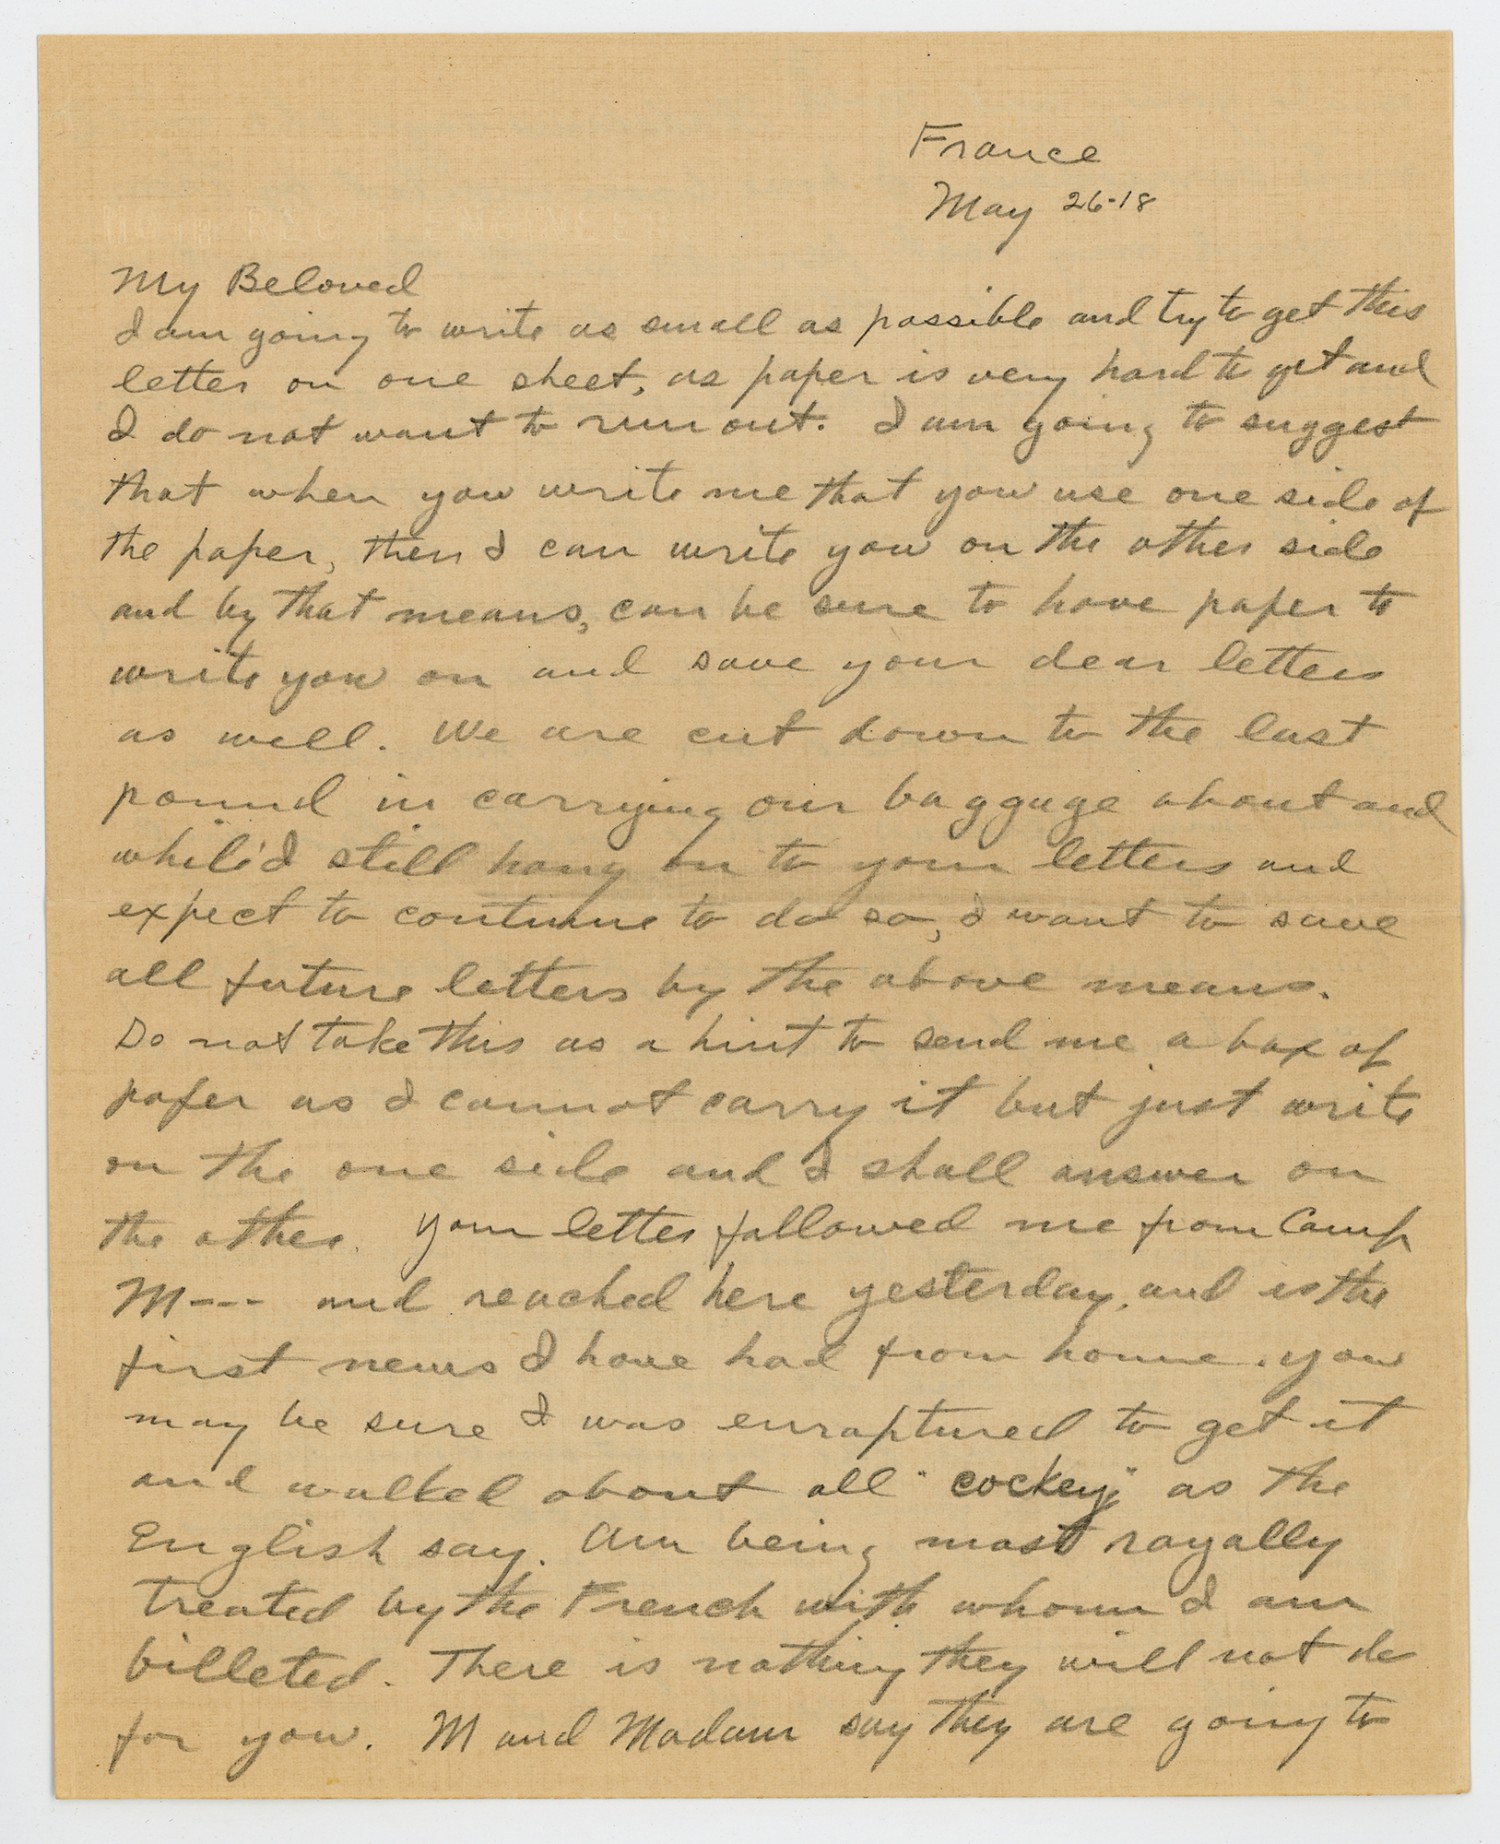 France
May 26-18
My Beloved
I am going to write as small as possible and try to get this
letter on one sheet, as paper is very hard to get and
I do not want to run out. I am going to suggest
that when you write me that you use one side of
the paper, then I can write you on the other side
and by that means, can be sure to have paper to
write you on and save your dear letters
as well. We are cut down to the last
pound in carrying our baggage about and
while I still hang on to your letters and
expect to continue to do so, I want to save
all future letters by the above means.
Do not take this as a hint to send me a box of
paper as I cannot carry it but just write
on the one side and I shall answer on
the other. Your letter followed me from Camp
M--- and reached here yesterday, and is the
first news I have had from home. You
may be sure I was enraptured to get it
and walked about all "cockey" as the
English say. Am being most royally
treated by the French with whom I am
billeted. There is nothing they will not do
for you. M and Madam say they are going to